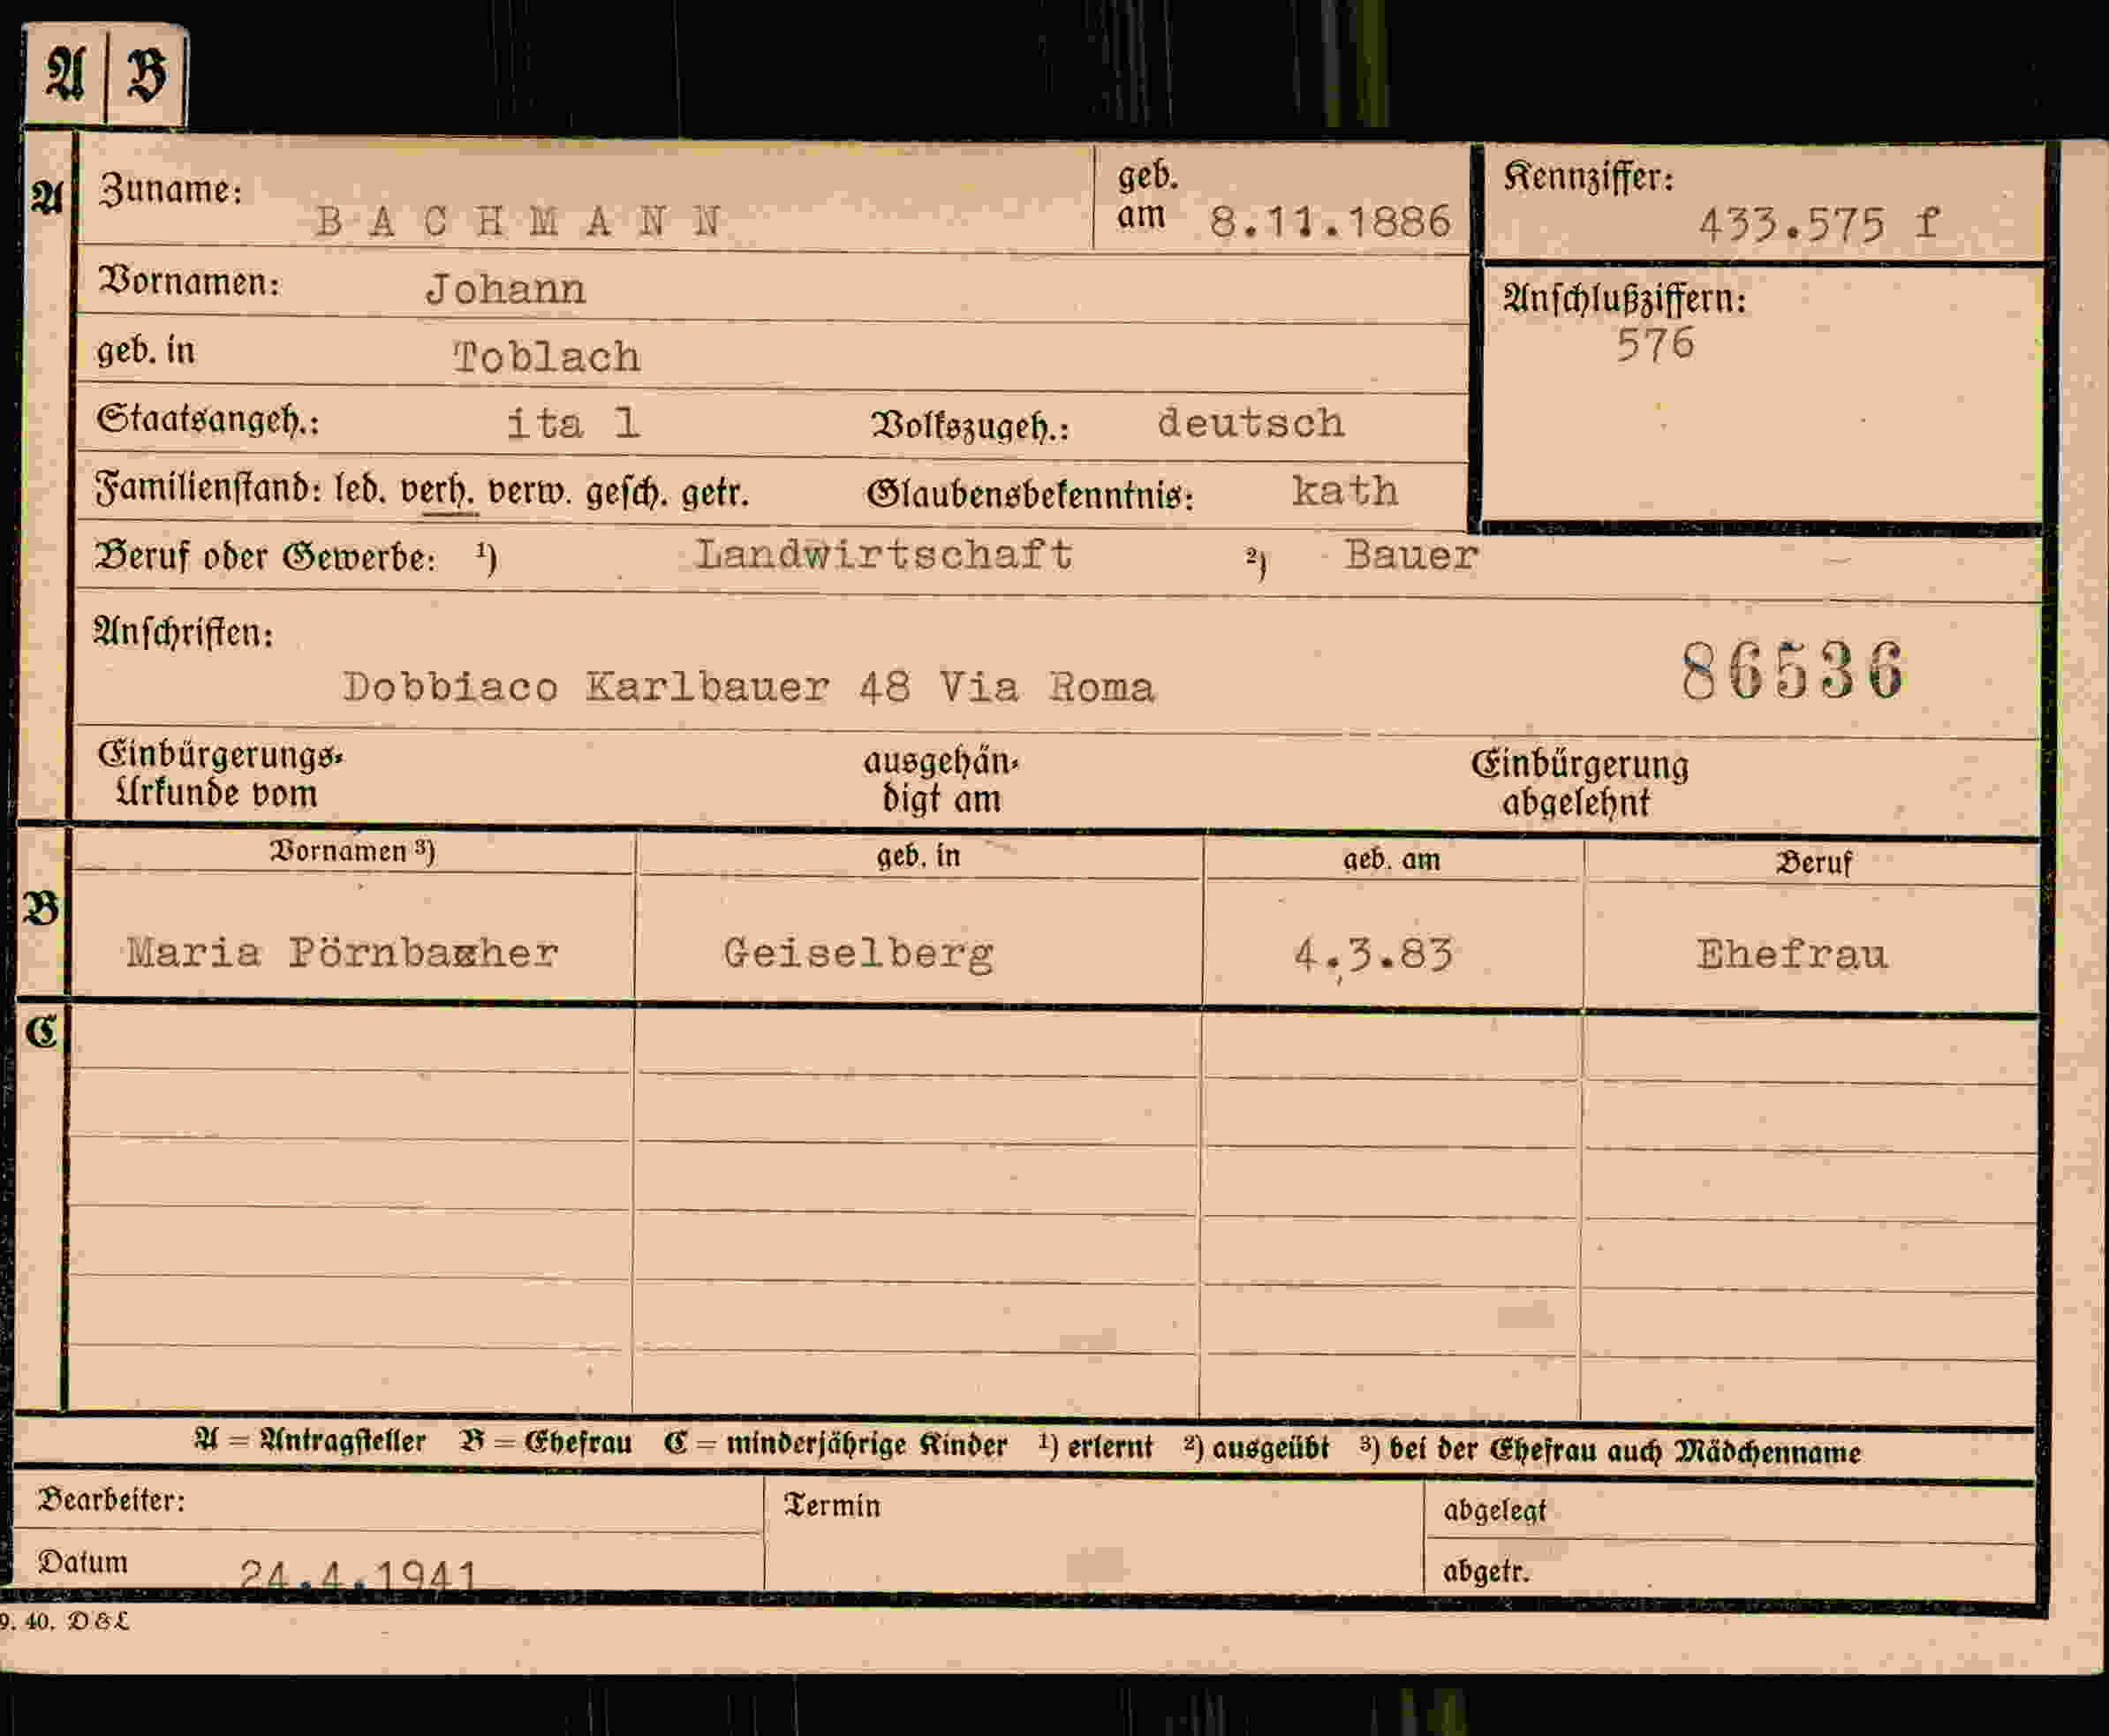 A B
A Zuname: BACHMANN geb. am 8.11.1886 Kennziffer: 433.575 f
Vornamen: Johann Anschlußziffern:
576
geb. in Toblach
Staatsangeh.: ita l Volkszugeh.: deutsch
Familienstand: led. verh. verw. gesch. getr. Glaubensbekenntnis: kath
Beruf oder Gewerbe: 1) Landwirtschaft 2) Bauer
Anschriften:
Dobbiaco Karlbauer 48 Via Roma 86536
Einbürgerungs- ausgehän- Einbürgerung
Urkunde vom digt am abgelehnt
B Vornamen 3) geb. in geb. am Beruf
Maria Pörnbacher Geiselberg 4.3.83 Ehefrau
C
A = Antragsteller B = Ehefrau C = minderjährige Kinder 1) erlernt 2) ausgeübt 3) bei der Ehefrau auch Mädchenname
Bearbeiter: Termin abgelegt
Datum 24.4.1941 abgetr.
9. 40. D&L